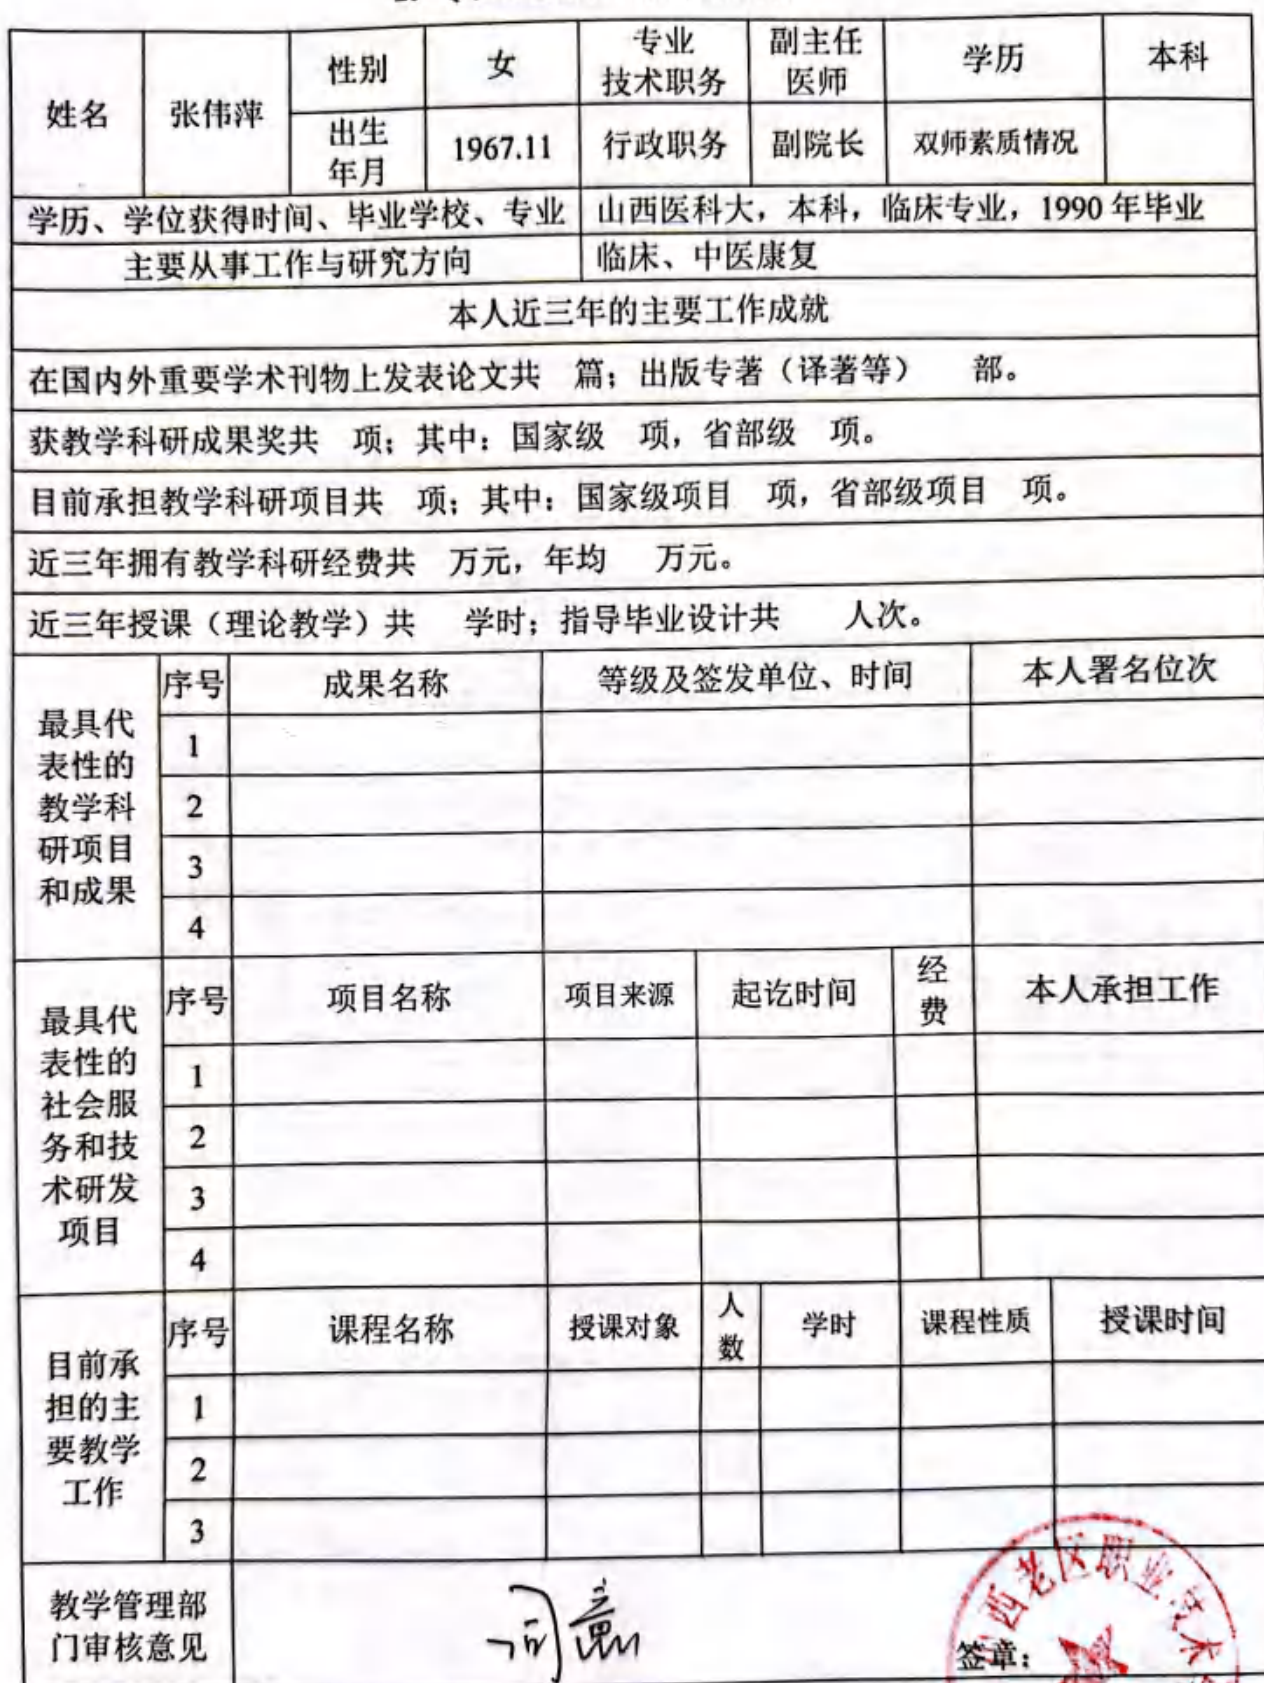 姓名 张伟萍 性别 女 专业技术职务 副主任医师 学历 本科
出生年月 1967.11 行政职务 副院长 双师素质情况
学历、学位获得时间、毕业学校、专业 山西医科大，本科，临床专业，1990 年毕业
主要从事工作与研究方向 临床、中医康复
本人近三年的主要工作成就
在国内外重要学术刊物上发表论文共 篇；出版专著（译著等） 部。
获教学科研成果奖共 项；其中：国家级 项，省部级 项。
目前承担教学科研项目共 项；其中：国家级项目 项，省部级项目 项。
近三年拥有教学科研经费共 万元，年均 万元。
近三年授课（理论教学）共 学时；指导毕业设计共 人次。
最具代表性的教学科研项目和成果
序号 成果名称 等级及签发单位、时间 本人署名位次
1
2
3
4
最具代表性的社会服务和技术研发项目
序号 项目名称 项目来源 起讫时间 经费 本人承担工作
1
2
3
4
目前承担的主要教学工作
序号 课程名称 授课对象 人数 学时 课程性质 授课时间
1
2
3
教学管理部门审核意见 同意
签章：
西老区职业技术